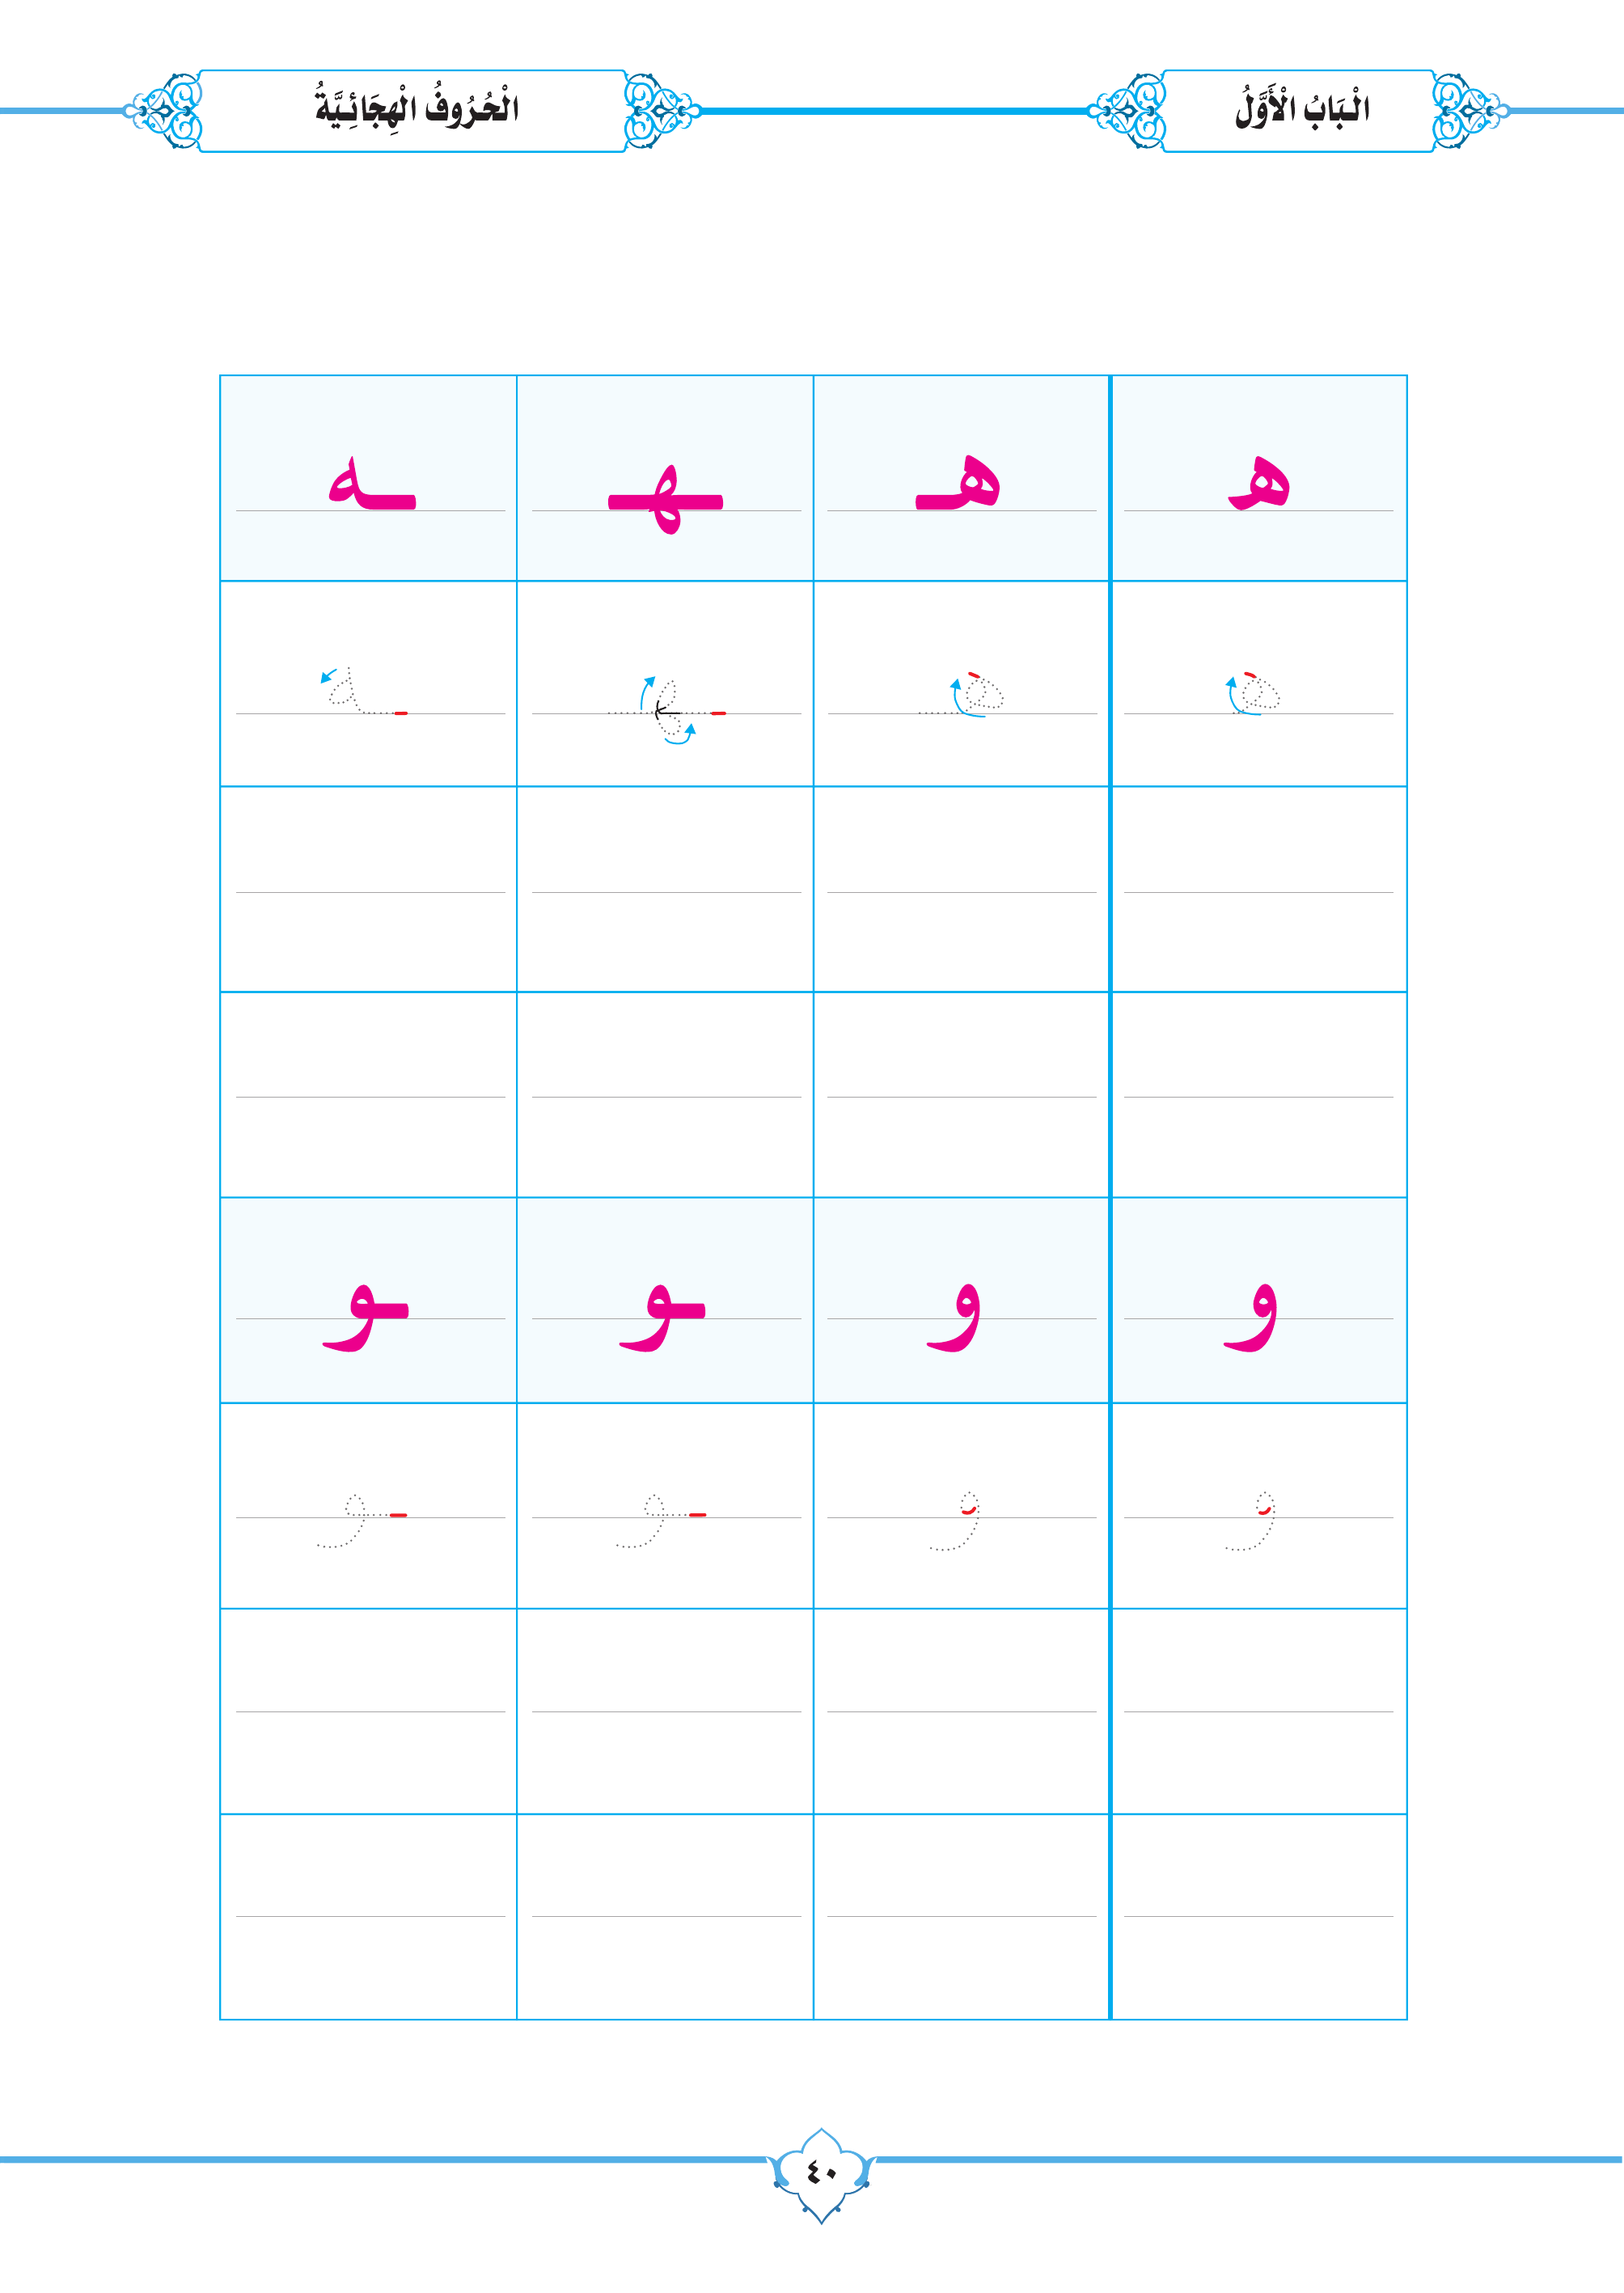 الْبَابُ الْأَوَّلُ
الْحُرُوفُ الْهِجَائِيَّةُ
هـ هـ ـهـ ـه
هـ هـ ـهـ ـه
و و ـو ـو
و و ـو ـو
٤٠